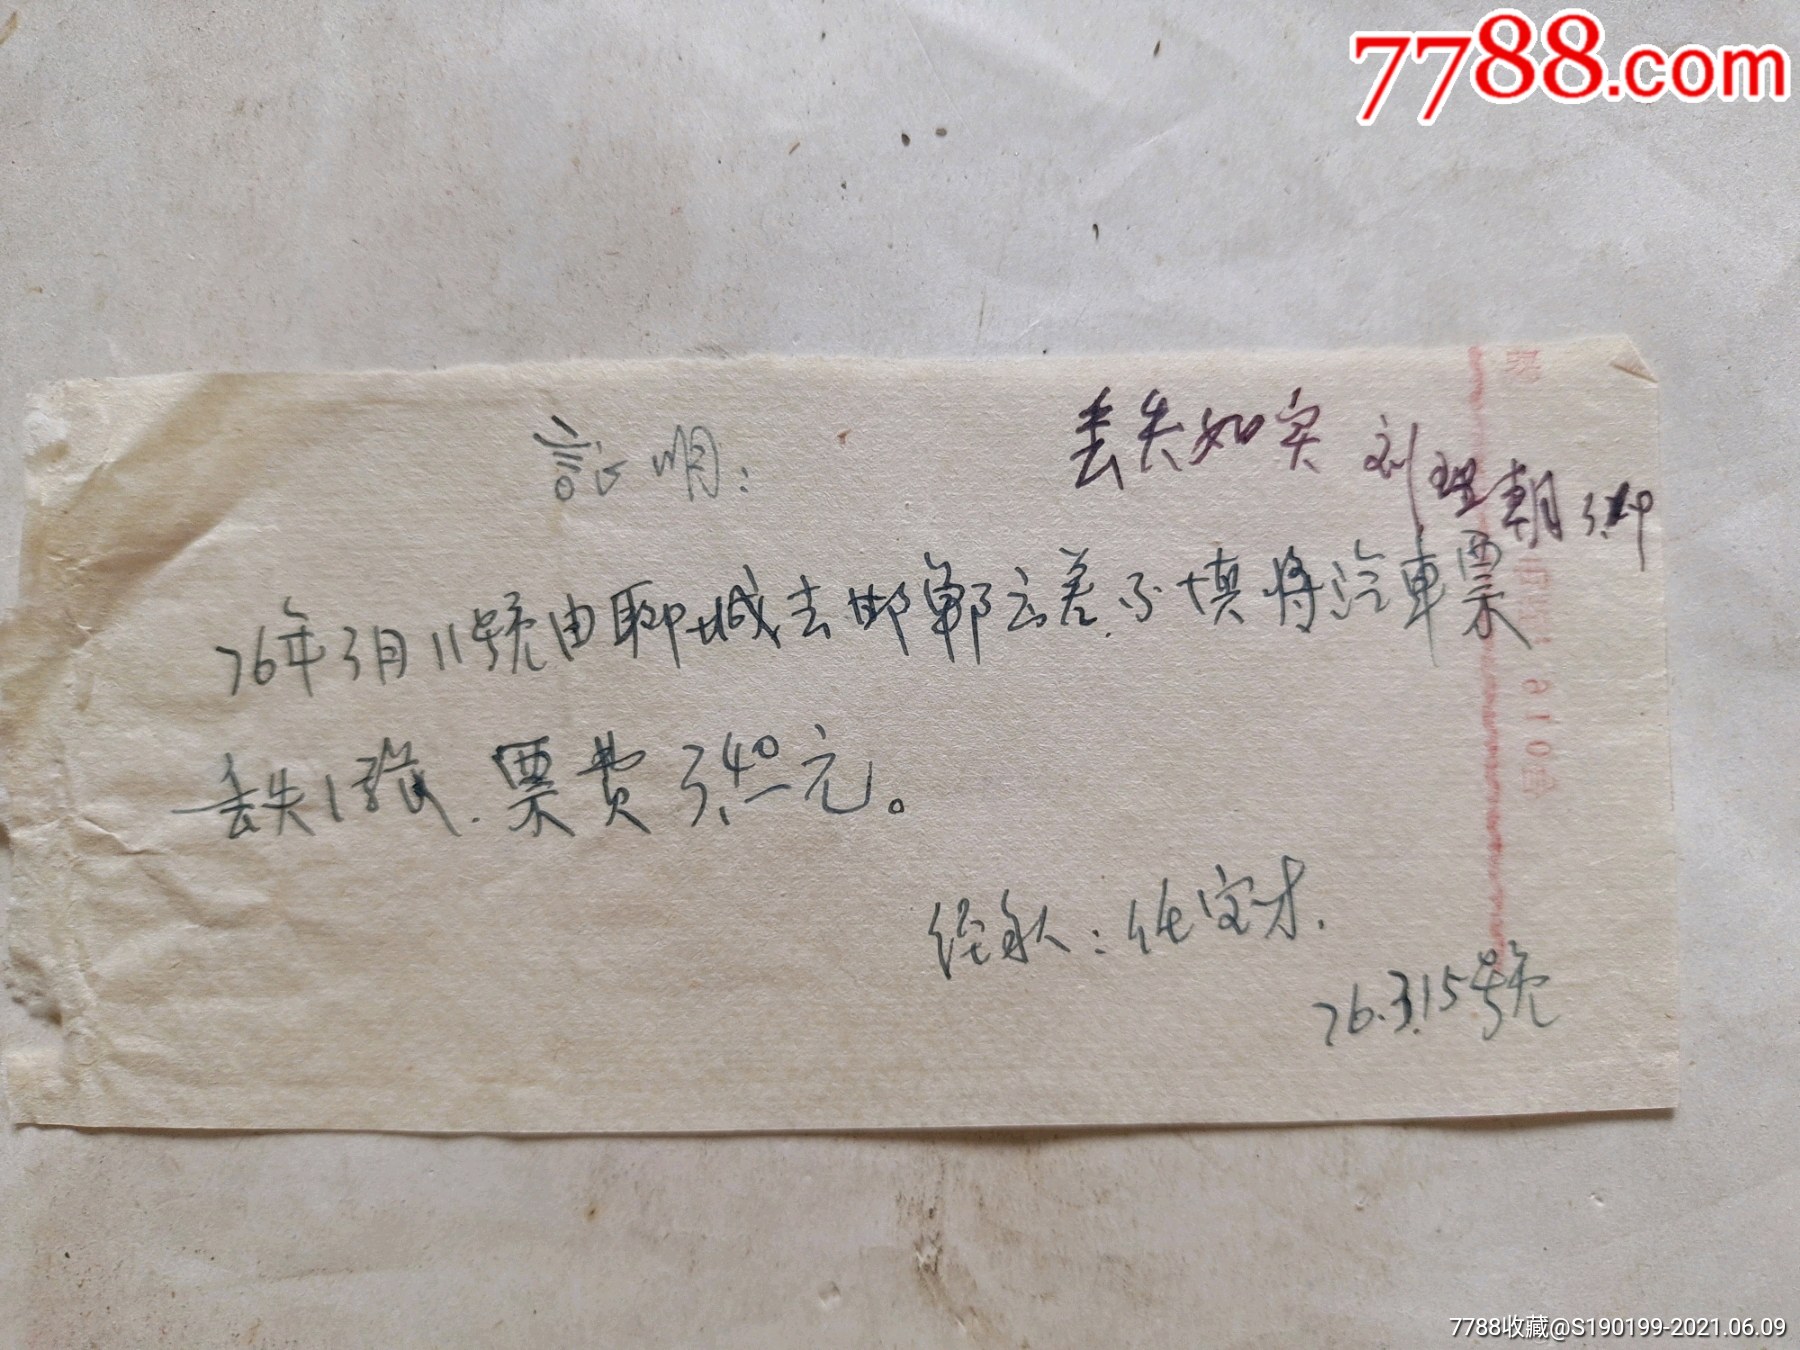 7788.com
証明：
丢失如实 刘理朝
76年3月11号由聊城去邯郸云差.不填将汽車票
丢失1张.票费3.40元。
经手人：任宝才.
76.3.15号
7788收藏@S190199-2021.06.09